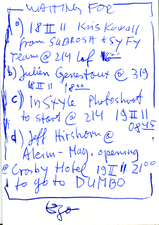 WAITING FOR
a) 18 II 11 Kris Kowall
from SUBROSA + SYFY
Team @ 214 Laf
b) Julien Genestoux @ 319
18 II 11 18:00
c) InStyle Photoshoot
to start @ 214 19 II 11
0845
d) Jeff Hirshorn @
Akim-Mag. opening
@ Crosby Hotel 19 II 11 21:00
to go to DUMBO